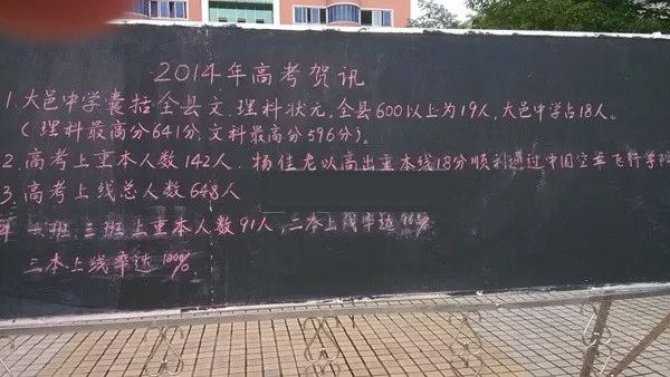 2014年高考贺讯
1.大邑中学囊括全县文.理科状元,全县600以上为19人,大邑中学占18人。
(理科最高分641分,文科最高分596分)。
2.高考上重本人数142人. 杨佳龙以高出重本线18分顺利通过中国空军飞行学院
3.高考上线总人数648人
一班.三班上重本人数91人,二本上线率达
三本上线率达100%